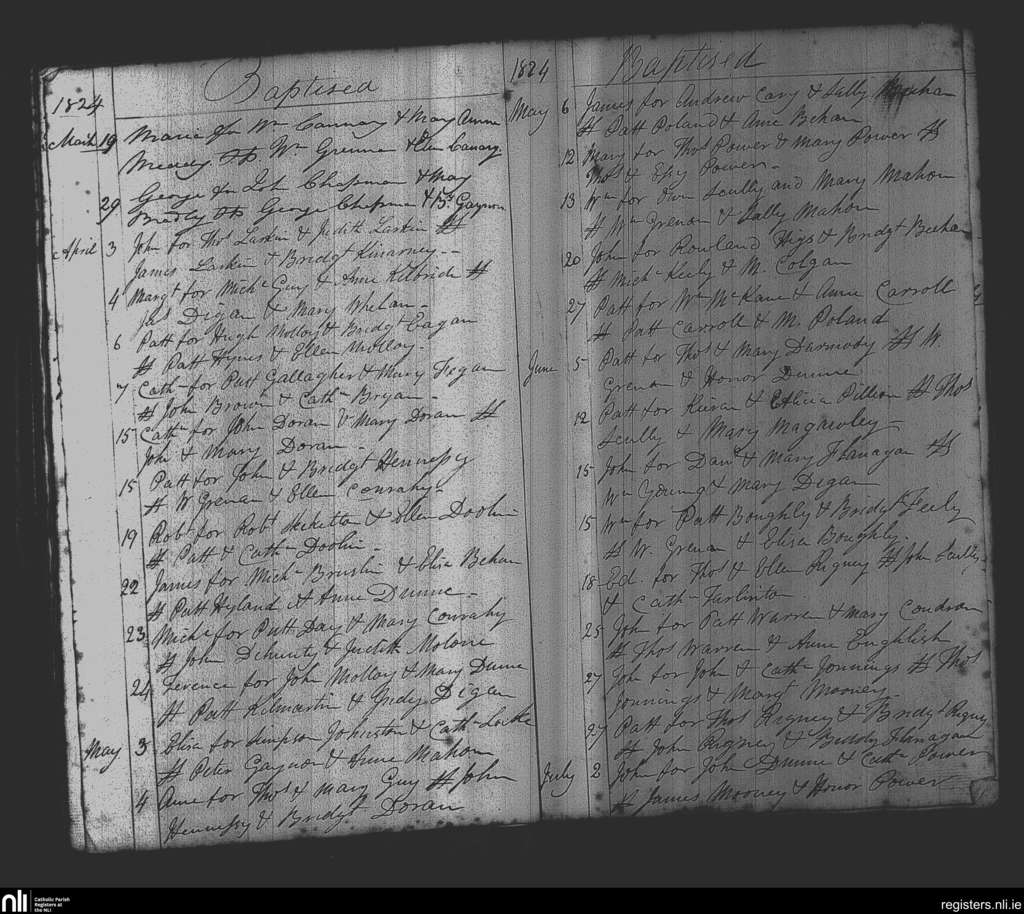 Baptised
1824
March 19 Maria for Wm Cannary & Mary Anne
Meady Sps Wm Grennan & Ellen Canary
29 George for Joh Chapman & May
Bradly Sps George Chapman & Bt Gaynor
April 3 John for Thos Larkin & Judith Larkin Sps
James Larkin & Bridgt Kinarney
4 Margt for Michl Guy & Anne Kilbride Sps
Jas Digan & Mary Whelan
6 Patt for Hugh Molloy & Bridgt Eagan
Sps Patt Hynes & Ellen Molloy
7 Cathn for Patt Gallagher & Mary Fegan
Sps John Brown & Cathn Bryan
15 Cathn for John Doran & Mary Doran Sps
John & Mary Doran
15 Patt for John & Bridgt Hennessy
Sps W Grenan & Ellen Conrahy
19 Robt for Robt & Ellen Doolin
Sps Patt & Cathn Doolin
22 James for Michl & Elisa Behan
Sps Patt Hyland & Anne Dunne
23 Michl for Patt Day & Mary Conrahy
Sps John & Judith
24 Terence for John Molloy & Mary Dunne
Sps Patt Kilmartin & Digan
May 3 Elisa for Simpson Johnston & Cathn Locke
Sps Peter Gaynor & Anne Mahon
4 Anne for Thos & Mary Guy Sps John
Hennessy & Bridgt Doran
1824
Baptised
May 6 James for Andrew Cary & Sally
Sps Patt Poland & Anne Behan
12 Mary for Thos Power & Mary Power Sps
Thos & Power
13 Wm for Own Scully and Mary Mahon
Sps Wm Grenan & Sally Mahon
20 John for Rowland & Bridgt
Sps Michl & M. Colgan
27 Patt for Wm McKane & Anne Carroll
Sps Patt Carroll & M. Poland
June 5 Patt for Thos & Mary Darmody Sps W.
Grenan & Honor Dunne
12 Patt for Kieran & Elicia Pillion Sps Thos
Scully & Mary Magawley
15 John for Danl & Mary Flanagan Sps
Wm Young & Mary Digan
15 Wm for Patt Boughly & Bridgt Feely
Sps W. Grenan & Elisa Boughly
18 Ed. for Thos & Ellen Rigney Sps John Scully
& Cathn
25 John for Patt Warren & Mary Condran
Sps Thos Warren & Anne Englilish
27 John for John & Cathn Jonnings Sps Thos
Jonnings & Margt Mooney
27 Patt for Thos Rigney & Bridgt Rigney
Sps John Rigney & Biddy Flanagan
July 2 John for John Dunne & Cathn Power
Sps James Mooney & Honor Power
nli Catholic Parish
Registers at
the NLI
registers.nli.ie